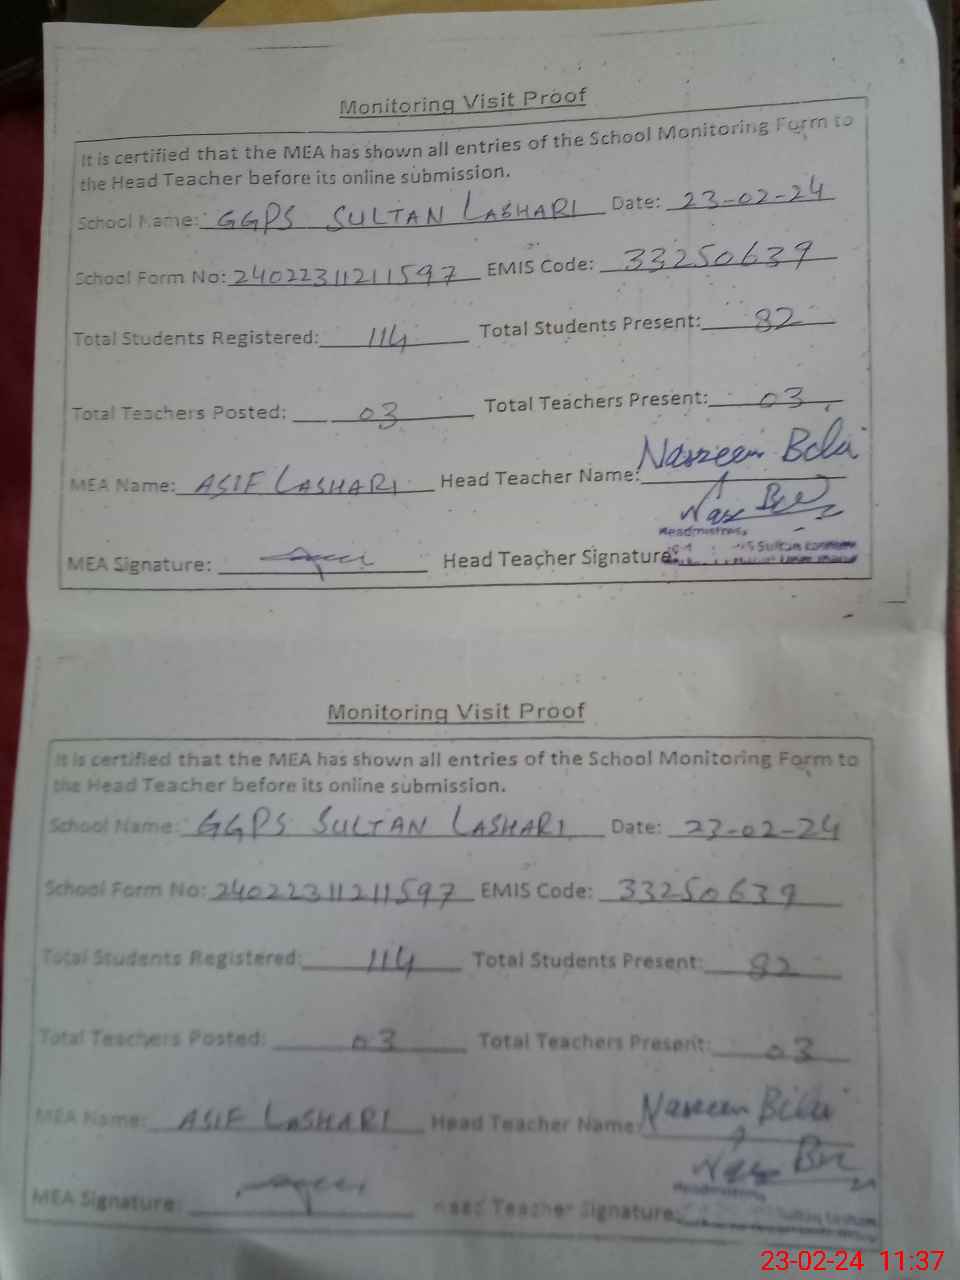 Monitoring Visit Proof
It is certified that the MEA has shown all entries of the School Monitoring Form to
the Head Teacher before its online submission.
School Name: GGPS SULTAN LASHARI Date: 23-02-24
School Form No: 24022311211597 EMIS Code: 33250639
Total Students Registered: 114 Total Students Present: 82
Total Teachers Posted: 03 Total Teachers Present: 03
MEA Name: ASIF LASHARI Head Teacher Name: Nasreen
Headmistress
MEA Signature: Head Teacher Signature: Sultan
Monitoring Visit Proof
It is certified that the MEA has shown all entries of the School Monitoring Form to
the Head Teacher before its online submission.
School Name: GGPS SULTAN LASHARI Date: 23-02-24
School Form No: 24022311211597 EMIS Code: 33250639
Total Students Registered: 114 Total Students Present: 82
Total Teachers Posted: 03 Total Teachers Present: 03
MEA Name: ASIF LASHARI Head Teacher Name: Nasreen
Headmistress
MEA Signature: Head Teacher Signature: Sultan Lashari
23-02-24 11:37